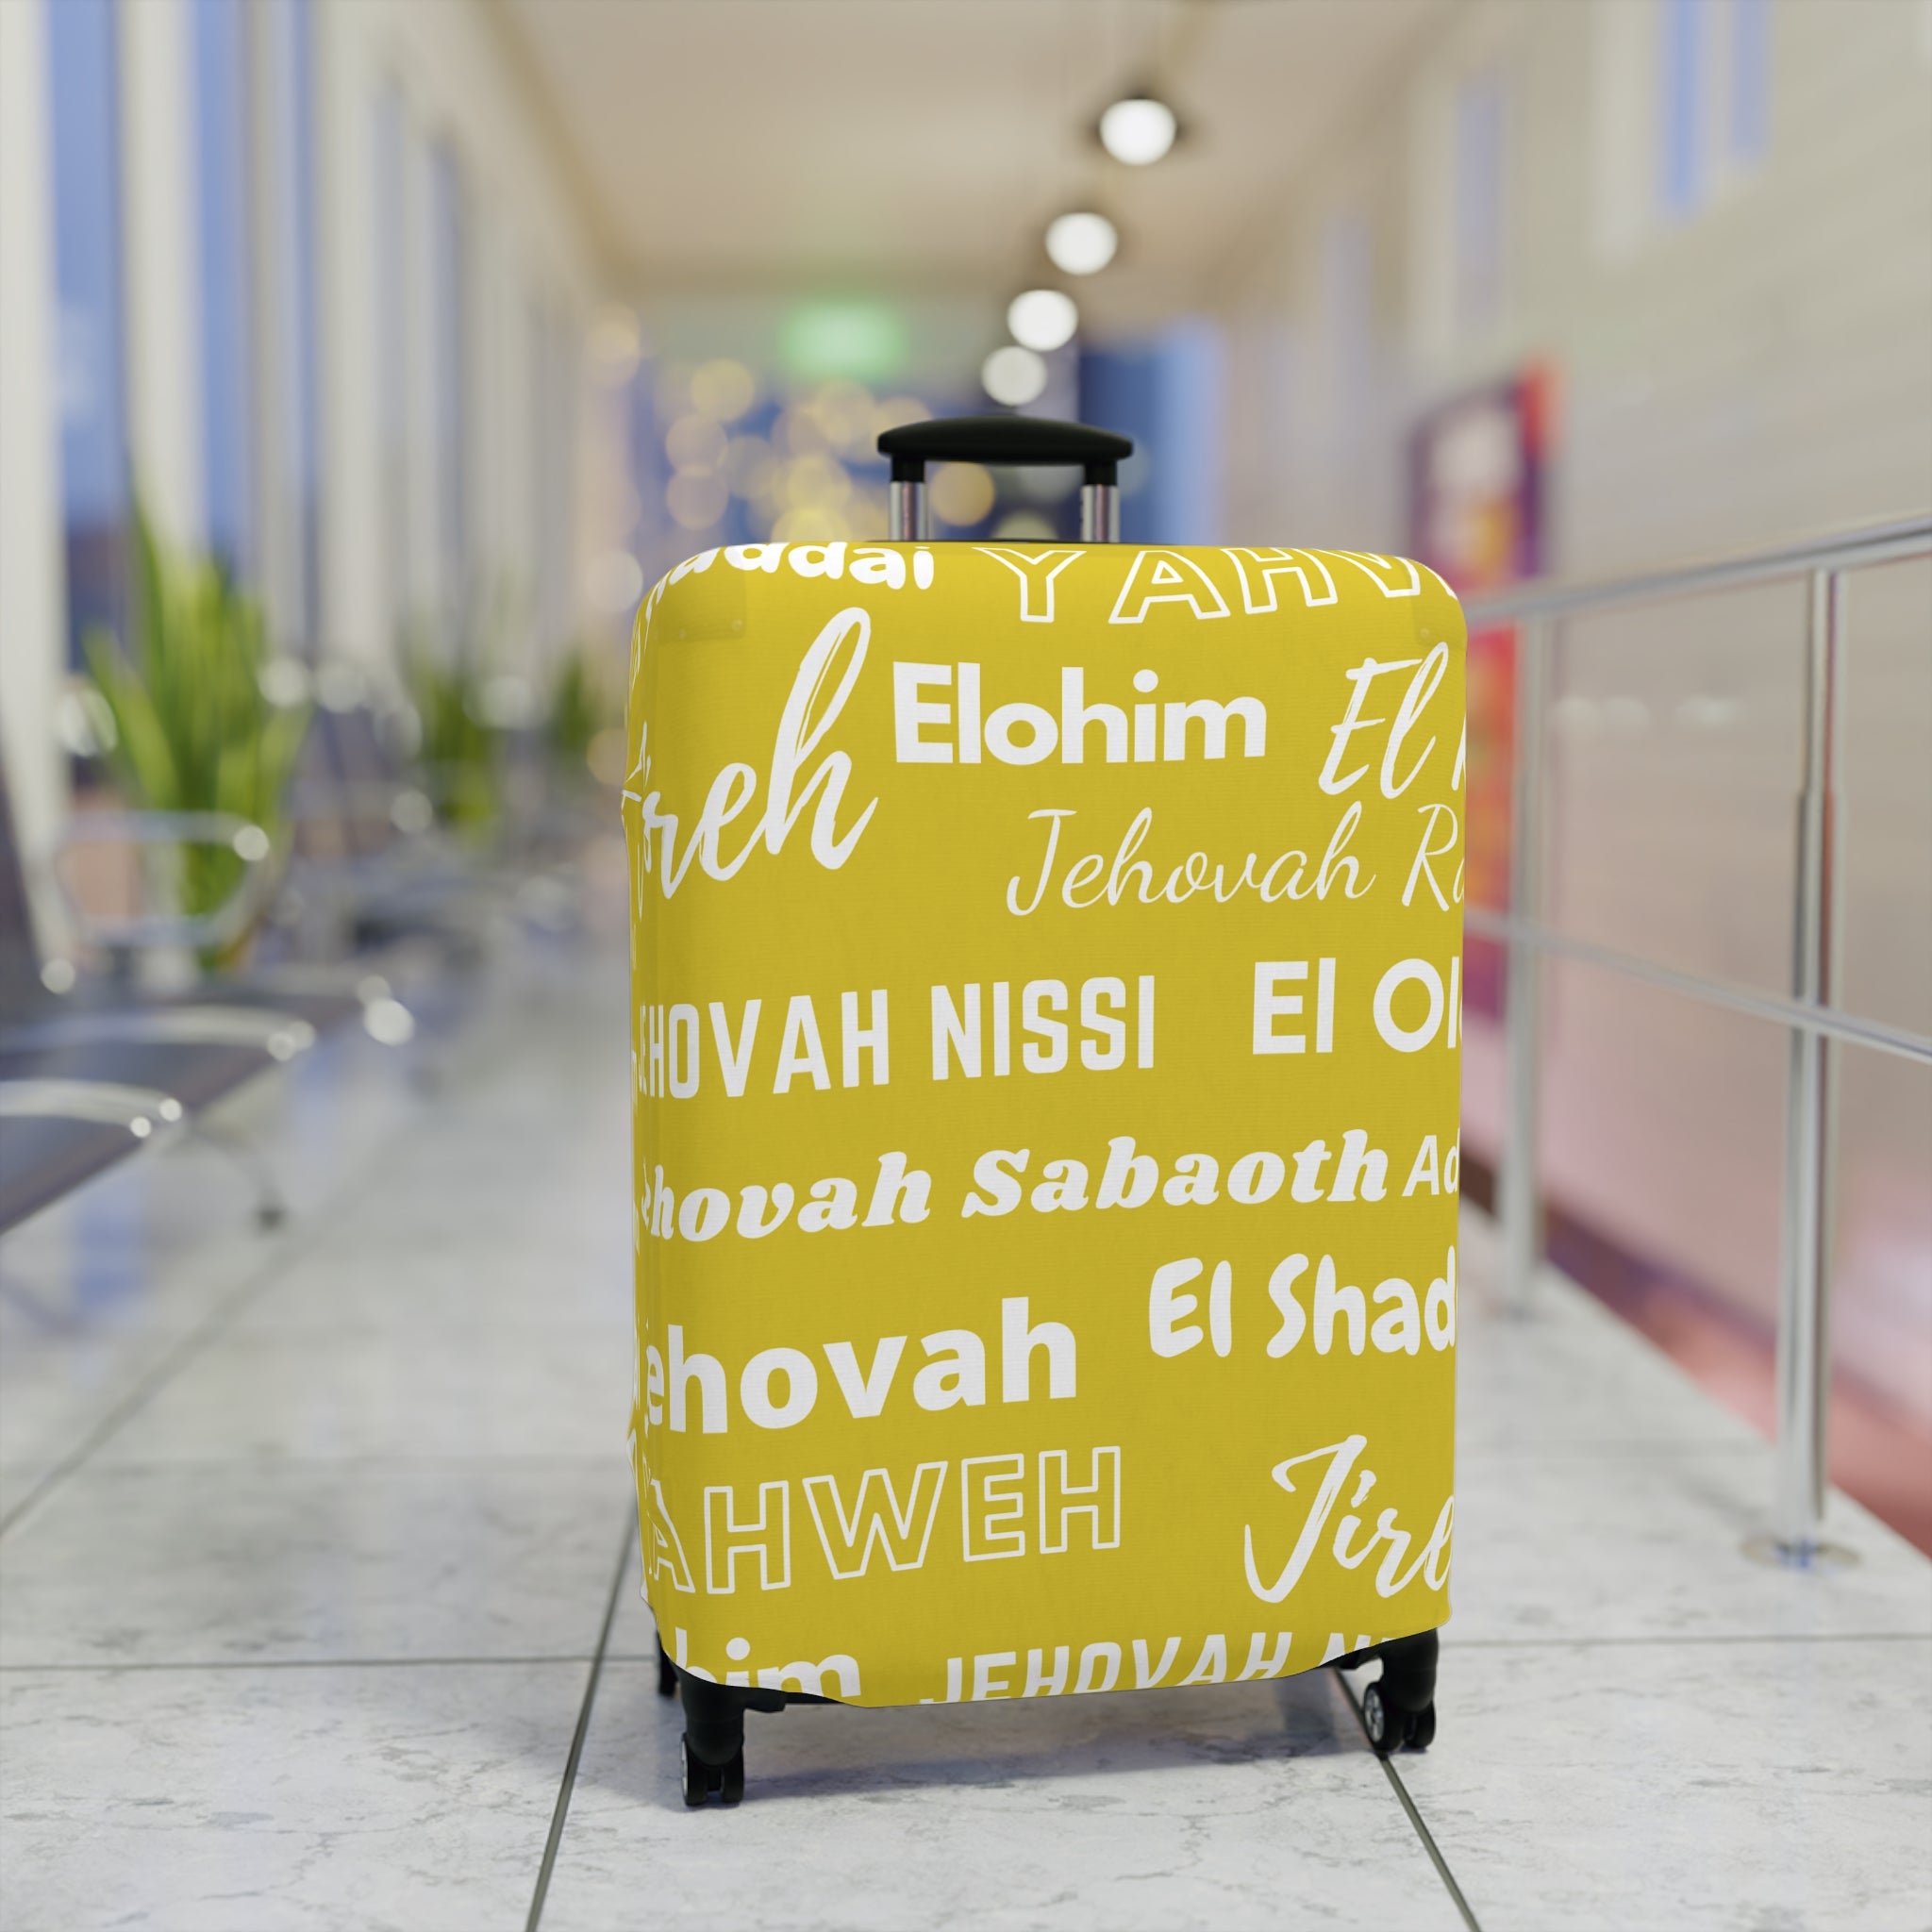 addai YAHV
reh Elohim El
Jehovah Ra
EHOVAH NISSI El Ol
ehovah Sabaoth Ad
ehovah El Shad
YAHWEH Jire
him JEHOVAH NI